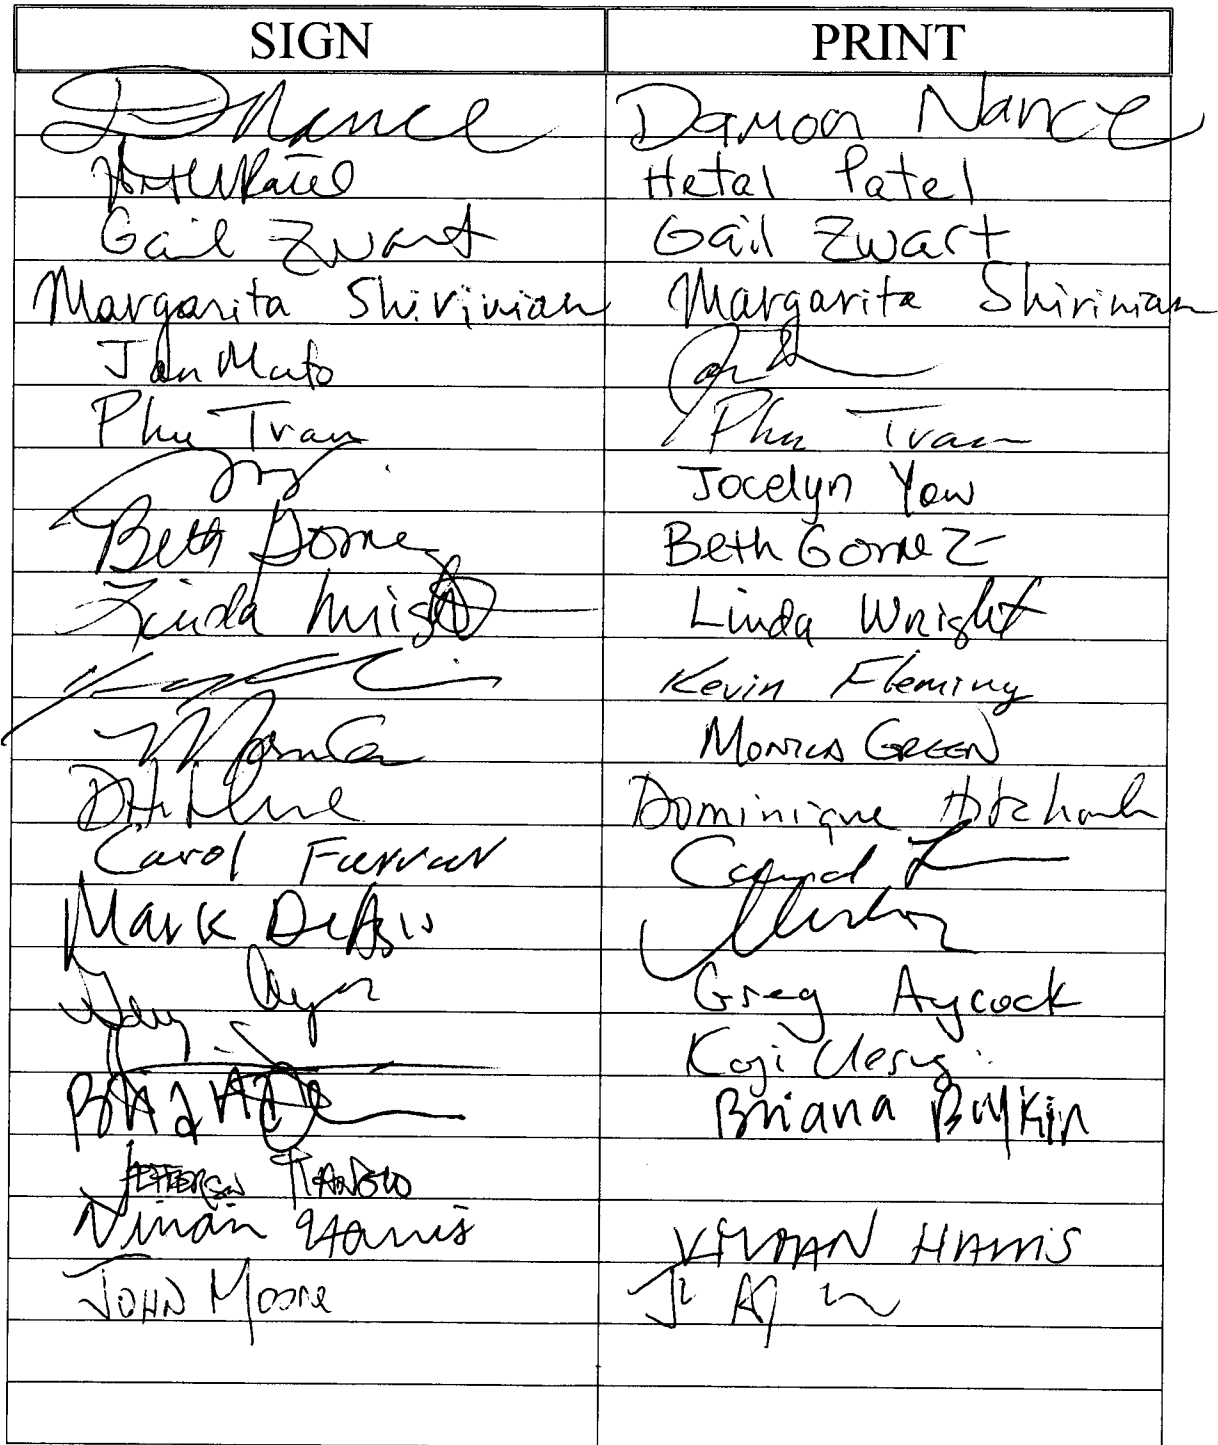 SIGN PRINT
DNance Damon Nance
Patel Hetal Patel
Gail Zwart Gail Zwart
Margarita Shirinian Margarita Shirinian
Jan Muto
Phu Tran Phu Tran
Jocelyn Yow
Beth Gomez Beth Gomez
Linda Wright Linda Wright
Kevin Fleming
Monica GREEN
Dominique
Carol Farrar
Mark DeAsis
Greg Aycock
Koji Uesugi
Briana Boykin
JEFFERSON TIANGCO
Vivian Harris VIVIAN HARRIS
JOHN Moore